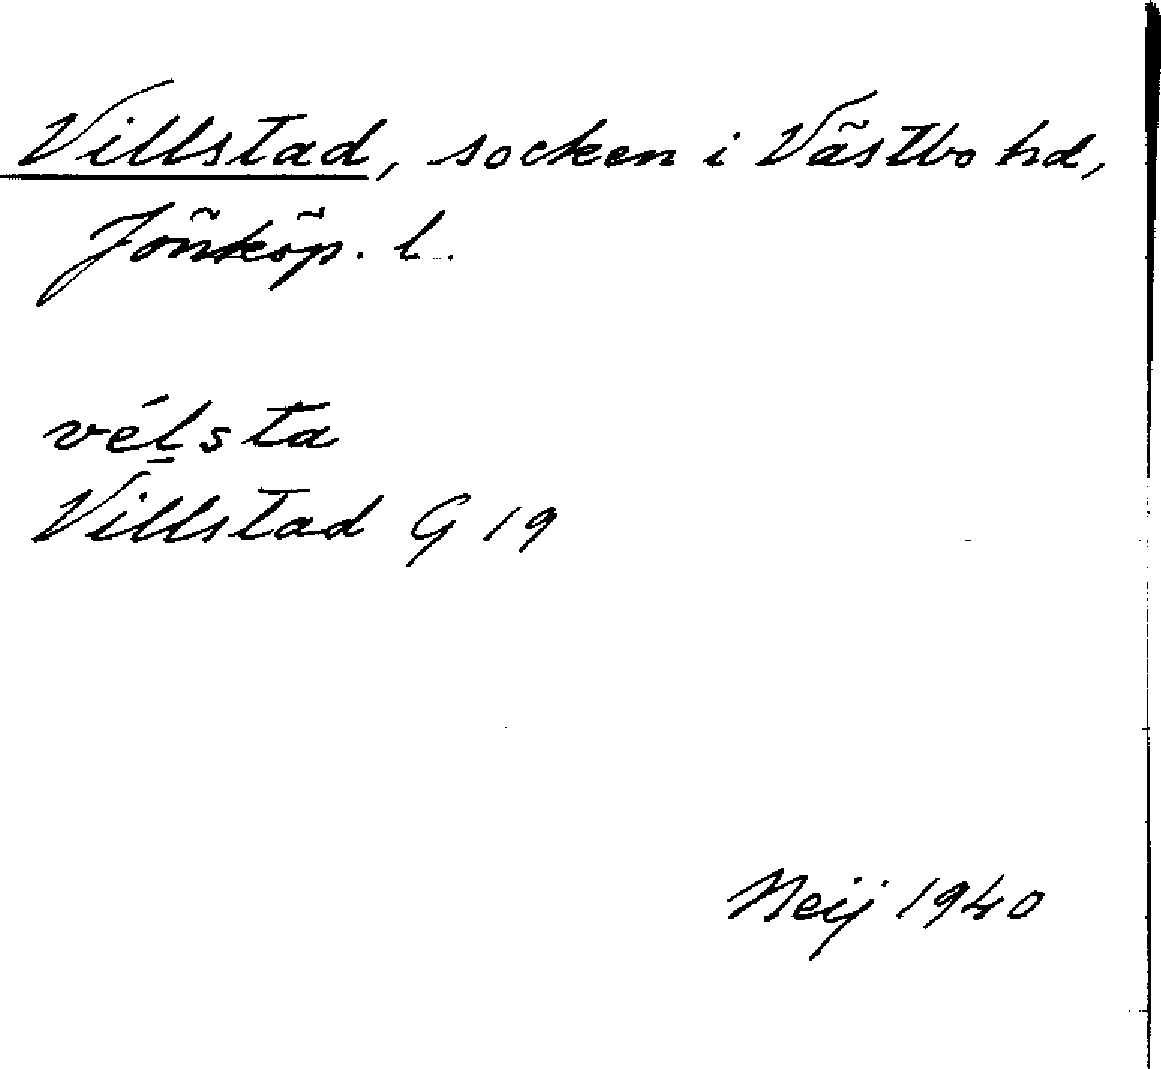 Villstad, socken i Västbo hd,
Jönköp. l.
vélsta
Villstad G 19
Neij 1940